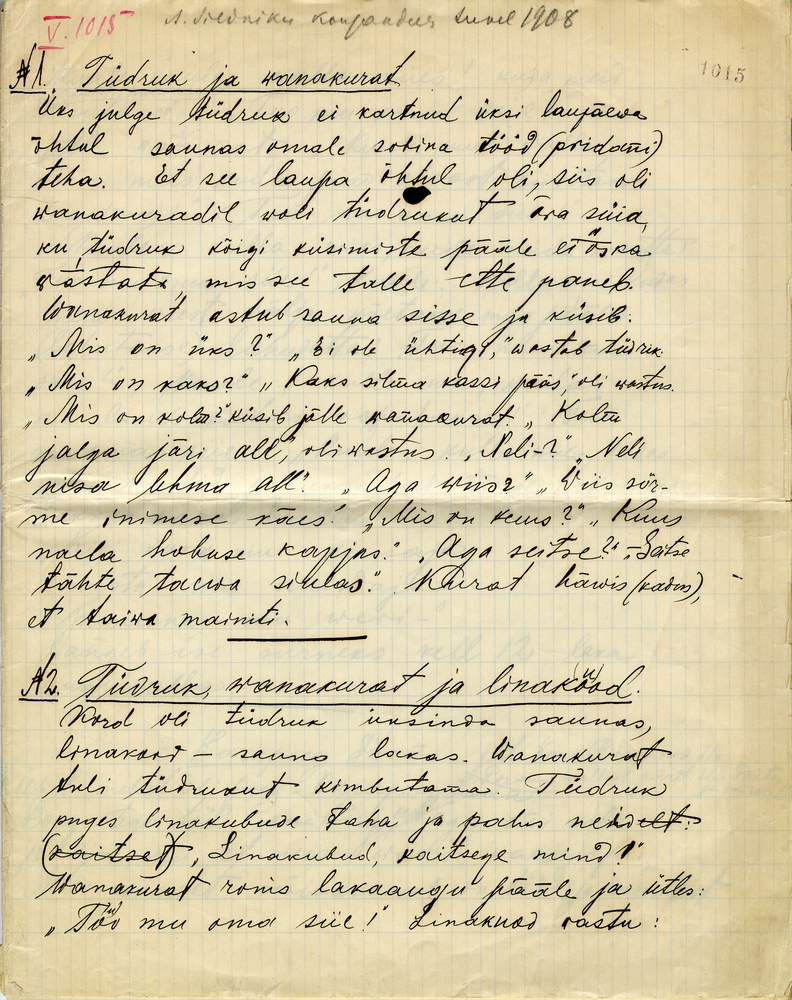 V. 1015 korjandus suvel 1908
1015
№1. Tüdruk ja wanakurat
Üks julge tüdruk ei kartnud üksi laupäewa
õhtul saunas omale sobina tööd (pridani)
teha. Et see laupa õhtul oli, siis oli
wanakuradil woli tüdrukut ära süia,
ku tüdruk kõigi küsimiste pääle ei õska
wästata, mis see talle ette paneb.
Wanakurat astub sauna sisse ja küsib:
„Mis on üks?" „Ei ole ühtigi," wastab tüdruk.
„Mis on kaks?" „Kaks silma kassi pääs," oli wastus.
„Mis on kolm?" küsib jälle wanakurat. „Kolm
jalga järi all," oli wastus. „Neli-?" „Neli
nisa lehma all". „Aga wiis?" „Wiis sõr-
me inimese käes." „Mis on kuus?" „Kuus
naela hobuse kapjas." „Aga seitse?" „Seitse
tähte taewa sinas." Kurat häwis (kadus),
et taiwa mainiti.
№2. Tüdruk, wanakurat ja linakood (uu).
Kord oli tüdruk üksinda saunas,
linakood – sauna lakas. Wanakurat
tuli tüdrukut kimbutama. Tüdruk
puges linakubude taha ja palus neidelt:
(kaitset), „Linakubud, kaitsege mind!"
Wanakurat ronis lakaaugu pääle ja ütles:
„Töö (uu) mu oma siie!" Linakuod wastu: